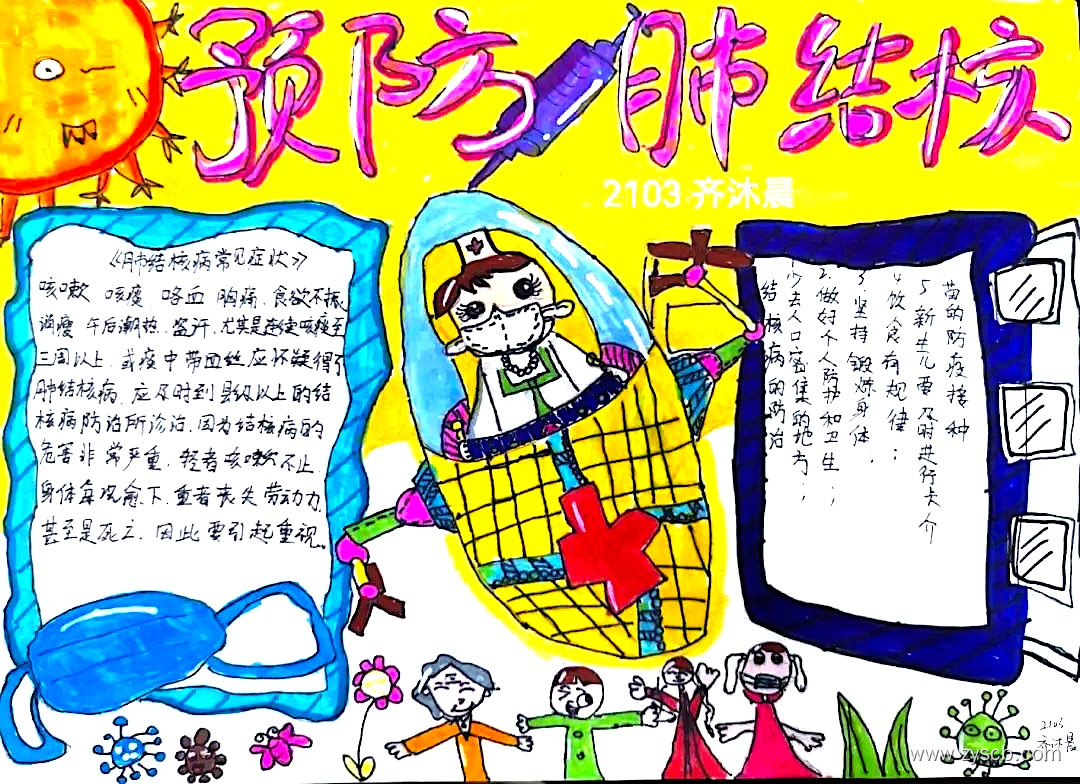 预防肺结核
2103 齐沐晨
《肺结核病常见症状》
咳嗽 咳痰 咯血 胸痛、食欲不振、
消瘦 午后潮热、盗汗、尤其是连续咳痰至
三周以上、或痰中带血丝应怀疑得了
肺结核病、应及时到县级以上的结
核病防治所诊治、因为结核病的
危害非常严重、轻者咳嗽不止、
身体每况愈下、重者丧失劳动力、
甚至是死亡、因此要引起重视。
结核病的防治
少去人口密集的地方；
2.做好个人防护和卫生；
3 坚持锻炼身体、
4 饮食有规律；
5 新生儿要及时进行卡介
苗的防疫接种
2103
齐沐晨
www.zyscb.com